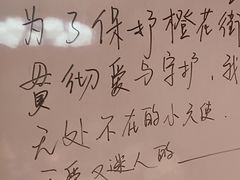 为了保护橙花街
贯彻爱与守护，我
无处不在的小天使.
可爱又迷人的